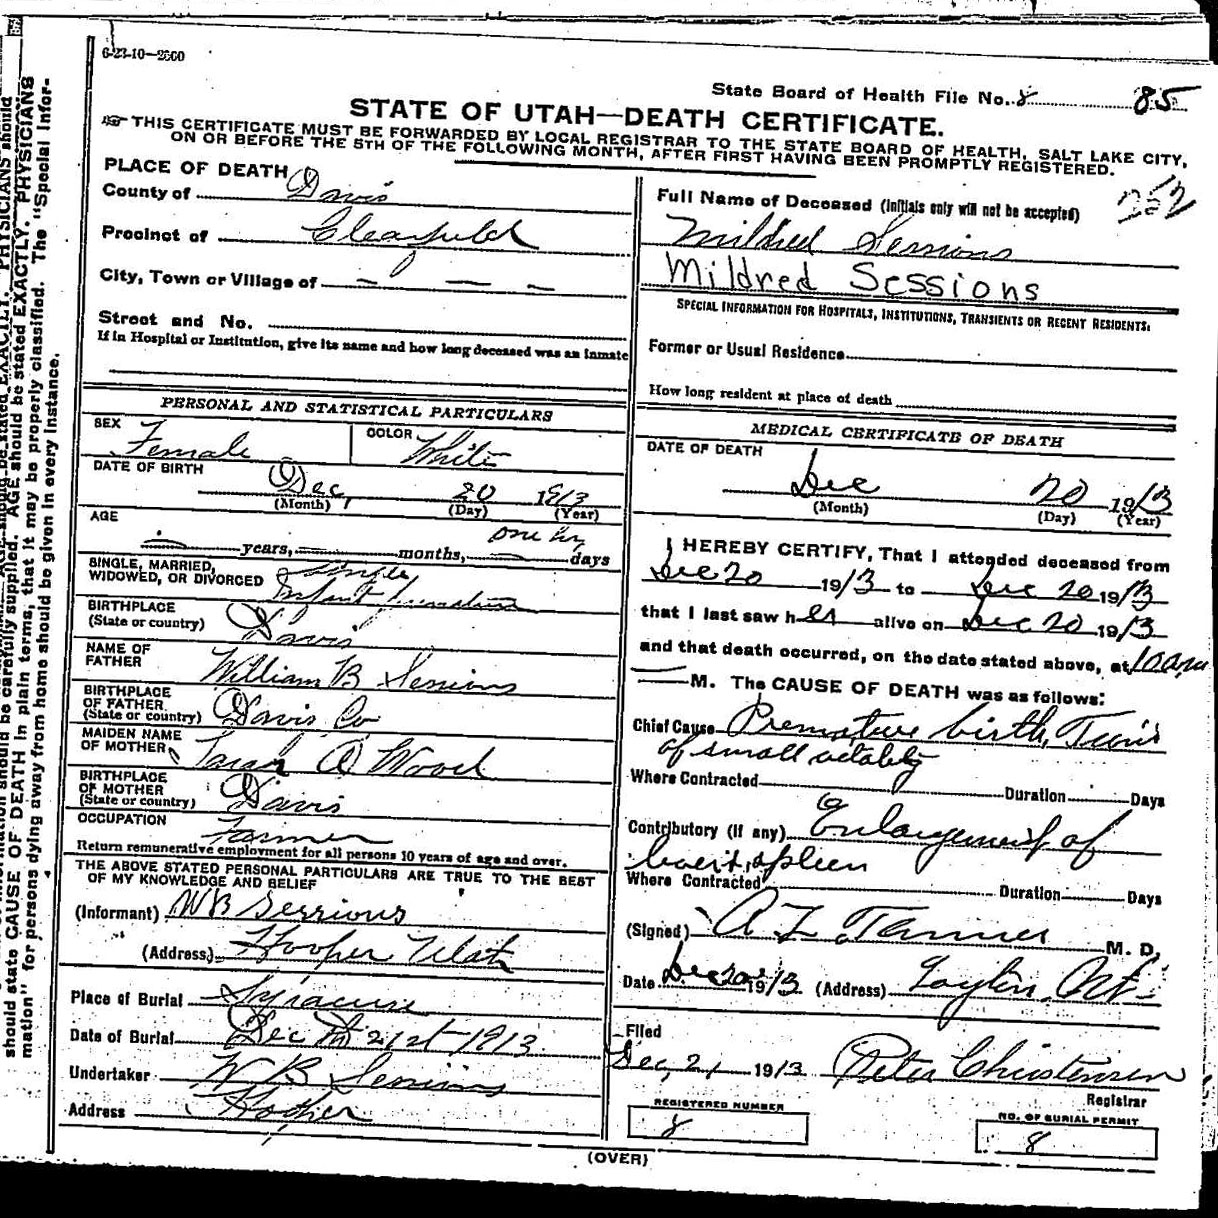 6-23-10-2500
State Board of Health File No. 8 85
STATE OF UTAH—DEATH CERTIFICATE.
THIS CERTIFICATE MUST BE FORWARDED BY LOCAL REGISTRAR TO THE STATE BOARD OF HEALTH, SALT LAKE CITY,
ON OR BEFORE THE 5TH OF THE FOLLOWING MONTH, AFTER FIRST HAVING BEEN PROMPTLY REGISTERED.
252
PLACE OF DEATH
County of Davis
Precinct of Clearfield
City, Town or Village of — — —
Street and No.
If in Hospital or Institution, give its name and how long deceased was an inmate
PERSONAL AND STATISTICAL PARTICULARS
SEX Female COLOR White
DATE OF BIRTH
Dec, 20 1913
(Month) (Day) (Year)
AGE
one hr
years, months, days
SINGLE, MARRIED,
WIDOWED, OR DIVORCED single
Infant premature
BIRTHPLACE
(State or country) Davis
NAME OF
FATHER William B Sessions
BIRTHPLACE
OF FATHER
(State or country) Davis Co
MAIDEN NAME
OF MOTHER Sarah A Wood
BIRTHPLACE
OF MOTHER
(State or country) Davis
OCCUPATION Farmer
Return remunerative employment for all persons 10 years of age and over.
THE ABOVE STATED PERSONAL PARTICULARS ARE TRUE TO THE BEST
OF MY KNOWLEDGE AND BELIEF
(Informant) WB Sessions
(Address) Hooper Utah
Place of Burial Syracuse
Date of Burial Dec 21st 1913
Undertaker W B Sessions
Address Hooper
Full Name of Deceased (Initials only will not be accepted)
Mildred Sessions
Mildred Sessions
SPECIAL INFORMATION FOR HOSPITALS, INSTITUTIONS, TRANSIENTS OR RECENT RESIDENTS:
Former or Usual Residence
How long resident at place of death
MEDICAL CERTIFICATE OF DEATH
DATE OF DEATH
Dec 20 1913
(Month) (Day) (Year)
I HEREBY CERTIFY, That I attended deceased from
Dec 20 1913 to Dec 20 1913
that I last saw her alive on Dec 20 1913
and that death occurred, on the date stated above, at 10 am
M. The CAUSE OF DEATH was as follows:
Chief Cause Premature birth, Twins
of small vitality
Where Contracted Duration Days
Contributory (if any) Enlargement of
heart, spleen
Where Contracted Duration Days
(Signed) A Z Tanner M. D.
Date Dec 20 1913 (Address) Layton, Ut
Filed
Dec, 21 1913 Peter Christensen
Registrar
REGISTERED NUMBER
8
NO. OF BURIAL PERMIT
8
(OVER)
should state CAUSE OF DEATH in plain terms, that it may be properly classified. The "Special Infor-
mation" for persons dying away from home should be given in every instance.